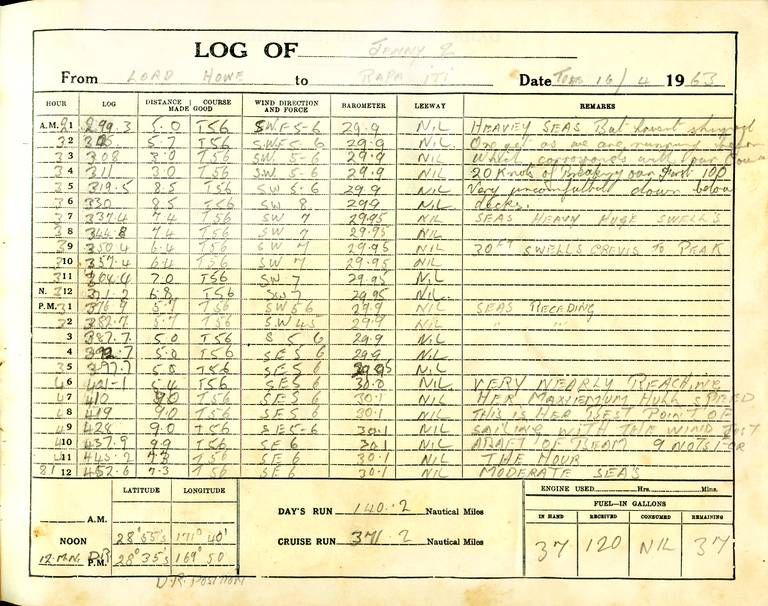 LOG OF JENNY 2
From LORD HOWE to RAPA ITI Date TUES 16/4 1963
HOUR LOG DISTANCE | COURSE MADE GOOD WIND DIRECTION AND FORCE BAROMETER LEEWAY REMARKS
A.M. 1 299.3 5.0 T56 S.W.F 5-6 29.9 NIL HEAVEY SEAS But havent
2 5.7 T56 SWF 5-6 29.9 NIL. One yet as we are running
3 308 3.0 T56 SW. 5-6 29.9 NIL Which corresponds with
4 311 3.0 T56 SW. 5-6 29.9 NIL 20 Knots of Breaking our First 100
5 319.5 8.5 T56 SW 5-6 29.9 NIL Very uncomfortable down below
6 330 8.5 T56 SW 8. 299 NIL decks.
7 337.4 7.4 T56 SW 7 29.95 NIL SEAS HEAVY HUGE SWELL'S
8 344.8 7.4 T56 SW 7 29.95 NIL
9 350.4 6.4 T56 SW 7 29.95 NIL 30FT SWELLS CREVIS TO PEAK
10 357.4 6.4 T56 SW 7 29.95 NIL
11 364.4 7.0 T56 SW 7 29.95 NIL
N. 12 371.2 6.8 T56 SW 7 29.95 NIL.
P.M. 1 5.7 T56 SW 5 6 29.9 NIL SEAS RECEDING
2 382.7 5.7 T56 S.W 4 5 29.9 NIL " "
3 387.7 5.0 T56 S 5 6 29.9 NIL
4 392.7 5.0 T56 S E S 6 29.9 NIL
5 397.7 5.0 T56 S E S 6 29.95 NIL
6 421-1 5.4 T56 S E S 6 30.0 NIL. VERY NEARLY REACHING
7 410 9.0 T56 S E S 6 30.1 NIL HER MAXIEMUM HULL SPEED
8 419 9.0 T56 S E S 6 30.1 NIL THIS IS HER BEST POINT OF
9 428 9.0 T56 S E 5-6 30.1 NIL SAILING WITH THE WIND JUST
10 437.9 9.9 T56 S E 6 30.1 NIL ABAFT OF BEAM 9 NOTS FOR
11 445.2 7.3 T56 S E 6 30.1 NIL THE HOUR
12 452.6 7.3 T56 S E 6 30.1 NIL MODERATE SEAS
LATITUDE LONGITUDE
A.M.
NOON 28° 55's 171° 40'
12 M.N. D.R P.M. 28° 35's 169° 50
D.R. POSITION
DAY'S RUN 140.2 Nautical Miles
CRUISE RUN 371.2 Nautical Miles
ENGINE USED Hrs. Mins.
FUEL—IN GALLONS
IN HAND RECEIVED CONSUMED REMAINING
37 120 NIL 37